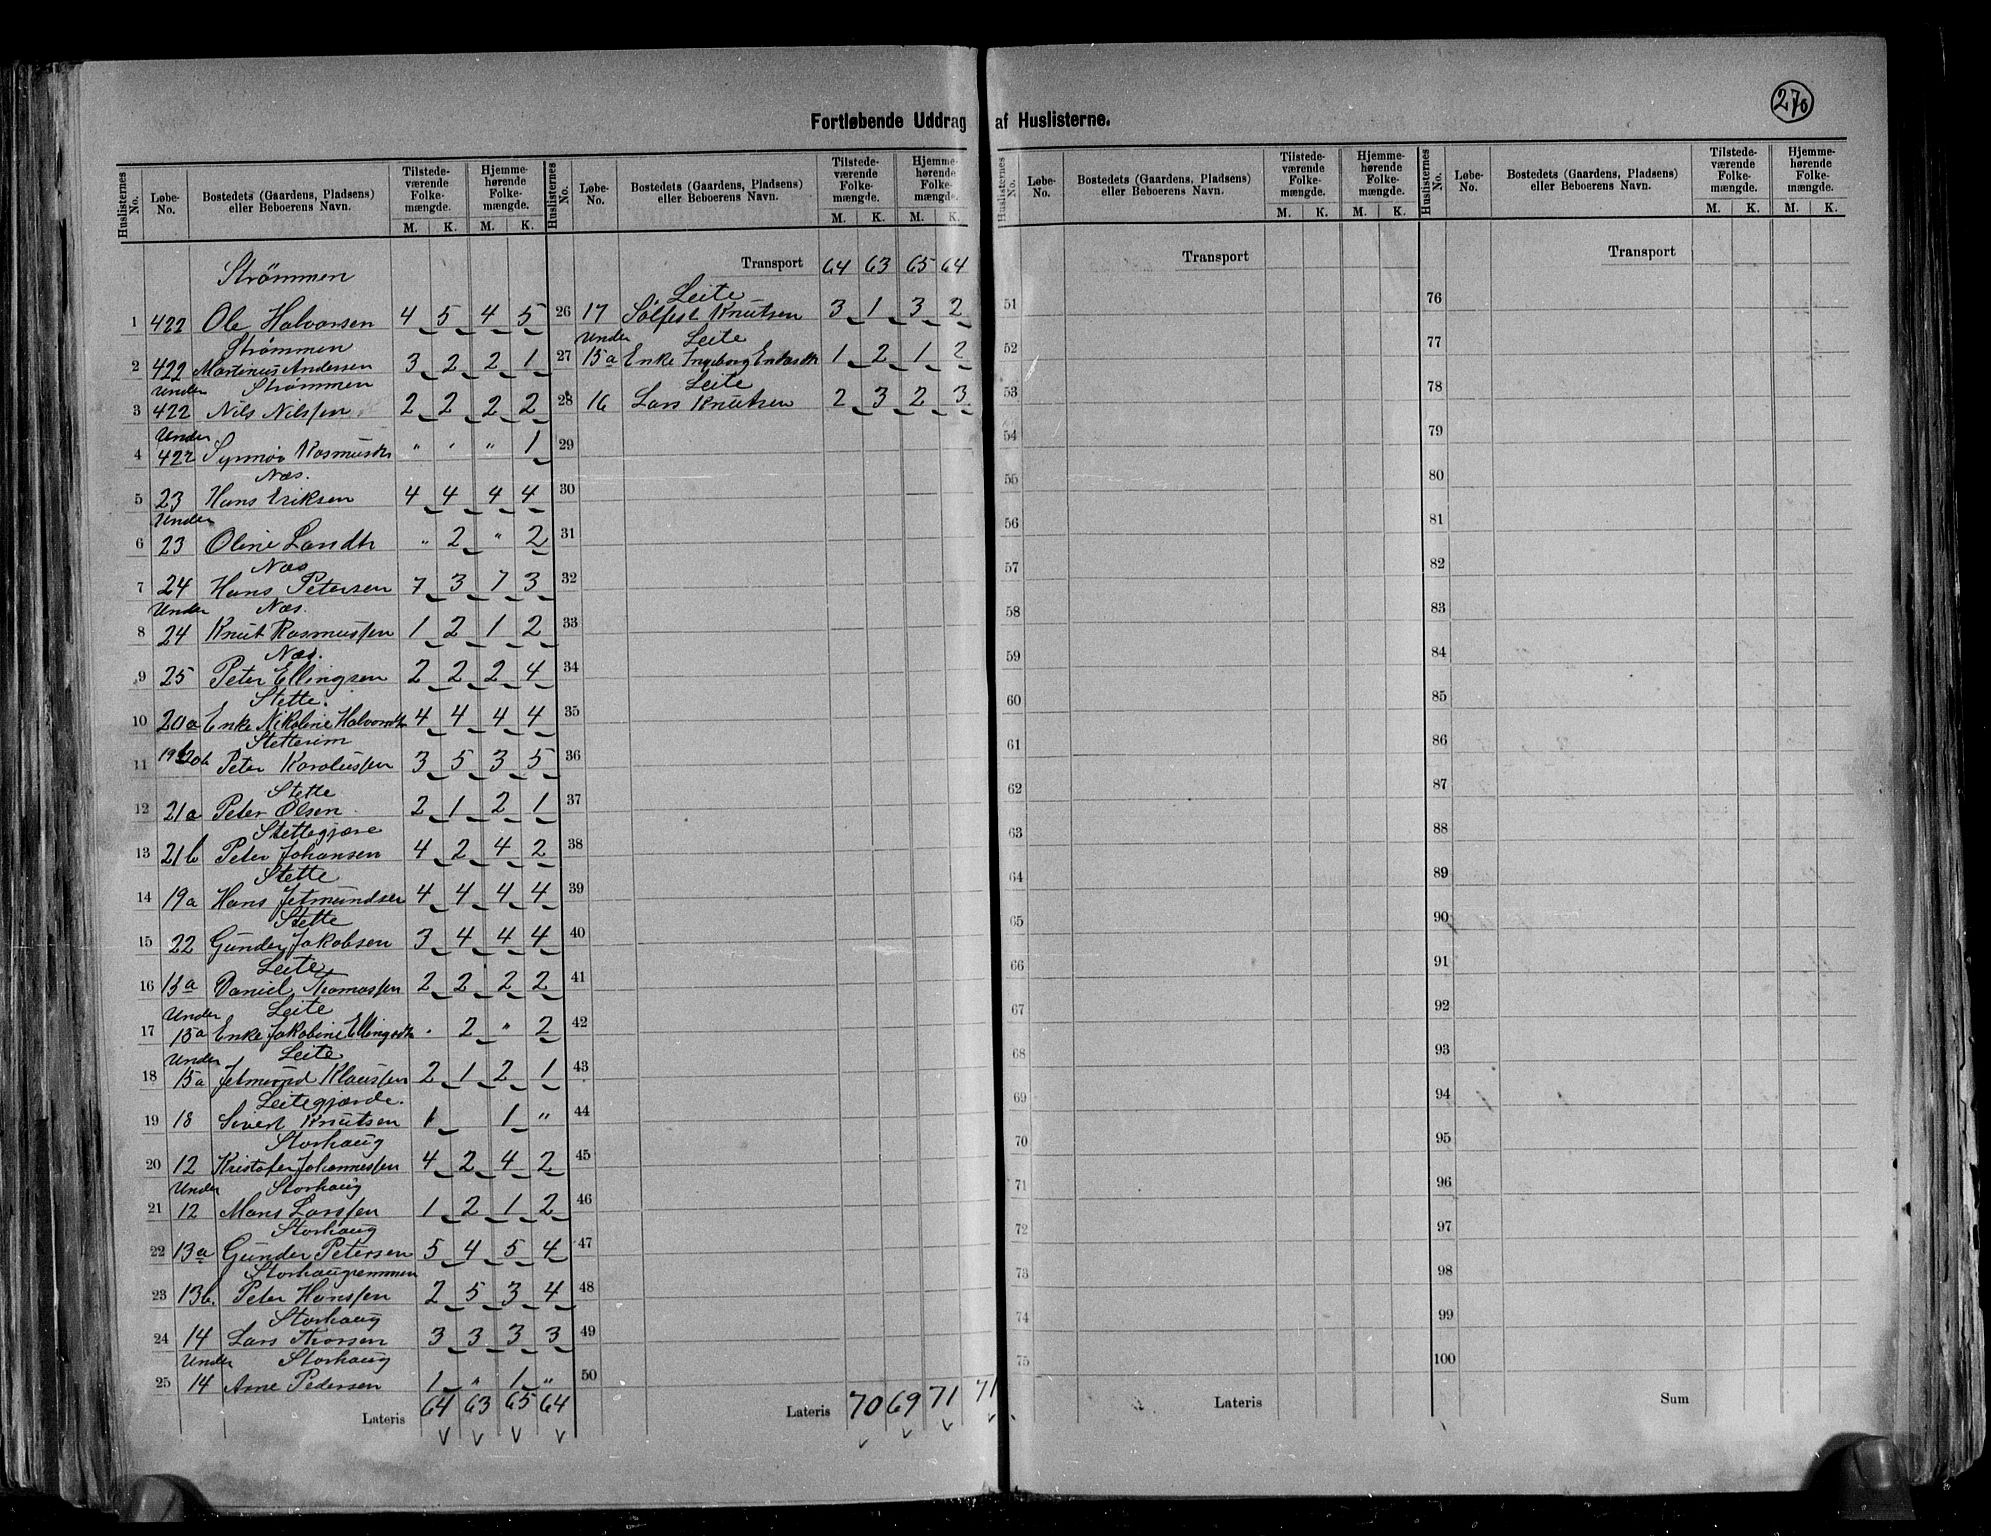 270
Fortløbende Uddrag af Huslisterne.
Huslisternes No. Løbe-No. Bostedets (Gaardens, Pladsens) eller Beboerens Navn. Tilstedeværende Folkemængde. M. K. Hjemmehørende Folkemængde. M. K.
Strømmen
1 422 Ole Halvorsen 4 5 4 5
Strømmen
2 422 Martinus Andersen 3 2 2 1
Under Strømmen
3 422 Nils Nilssen 2 2 2 2
Under
4 422 Synnøv Rasmusdtr " " " 1
Næs.
5 23 Hans Eriksen 4 4 4 4
Under
6 23 Oline Larsdtr " 2 " 2
Næs
7 24 Hans Petersen 7 3 7 3
Under Næs.
8 24 Knut Rasmussen 1 2 1 2
Næs.
9 25 Peter Ellingsen 2 2 2 4
Stette.
10 20a Enke Nikoline Halvorsdtr 4 4 4 4
Stetterim
11 19b 20b Peter Karolussen 3 5 3 5
Stette
12 21a Peter Olsen 2 1 2 1
Stettegjære
13 21b Peter Johansen 4 2 4 2
Stette
14 19a Hans Jetmundsen 4 4 4 4
Stette
15 22 Gunder Jakobsen 3 4 4 4
Leite
16 15a Daniel Thomassen 2 2 2 2
Under Leite
17 15a Enke Jakobine Ellingsdtr " 2 " 2
Under Leite
18 15a Jetmund Klaussen 2 1 2 1
Leitegjærde.
19 18 Sivert Knutsen 1 1 "
Storhaug
20 12 Kristofer Johannessen 4 2 4 2
Under Storhaug
21 12 Mons Larssen 1 2 1 2
Storhaug
22 13a Gunder Petersen 5 4 5 4
Storhaugremmen
23 13b. Peter Hanssen 2 5 3 4
Storhaug
24 14 Lars Thorsen 3 3 3 3
Under Storhaug
25 14 Arne Pedersen 1 " 1 "
Lateris 64 63 65 64
Huslisternes No. Løbe-No. Bostedets (Gaardens, Pladsens) eller Beboerens Navn. Tilstedeværende Folkemængde. M. K. Hjemmehørende Folkemængde. M. K.
Transport 64 63 65 64
Leite
26 17 Sølfest Knutsen 3 1 3 2
Under Leite
27 15a Enke Ingeborg 1 2 1 2
Leite
28 16 Lars Knutsen 2 3 2 3
29
30
31
32
33
34
35
36
37
38
39
40
41
42
43
44
45
46
47
48
49
50
Lateris 70 69 71 71
Huslisternes No. Løbe-No. Bostedets (Gaardens, Pladsens) eller Beboerens Navn. Tilstedeværende Folkemængde. M. K. Hjemmehørende Folkemængde. M. K.
Transport
51
52
53
54
55
56
57
58
59
60
61
62
63
64
65
66
67
68
69
70
71
72
73
74
75
Lateris
Huslisternes No. Løbe-No. Bostedets (Gaardens, Pladsens) eller Beboerens Navn. Tilstedeværende Folkemængde. M. K. Hjemmehørende Folkemængde. M. K.
Transport
76
77
78
79
80
81
82
83
84
85
86
87
88
89
90
91
92
93
94
95
96
97
98
99
100
Sum